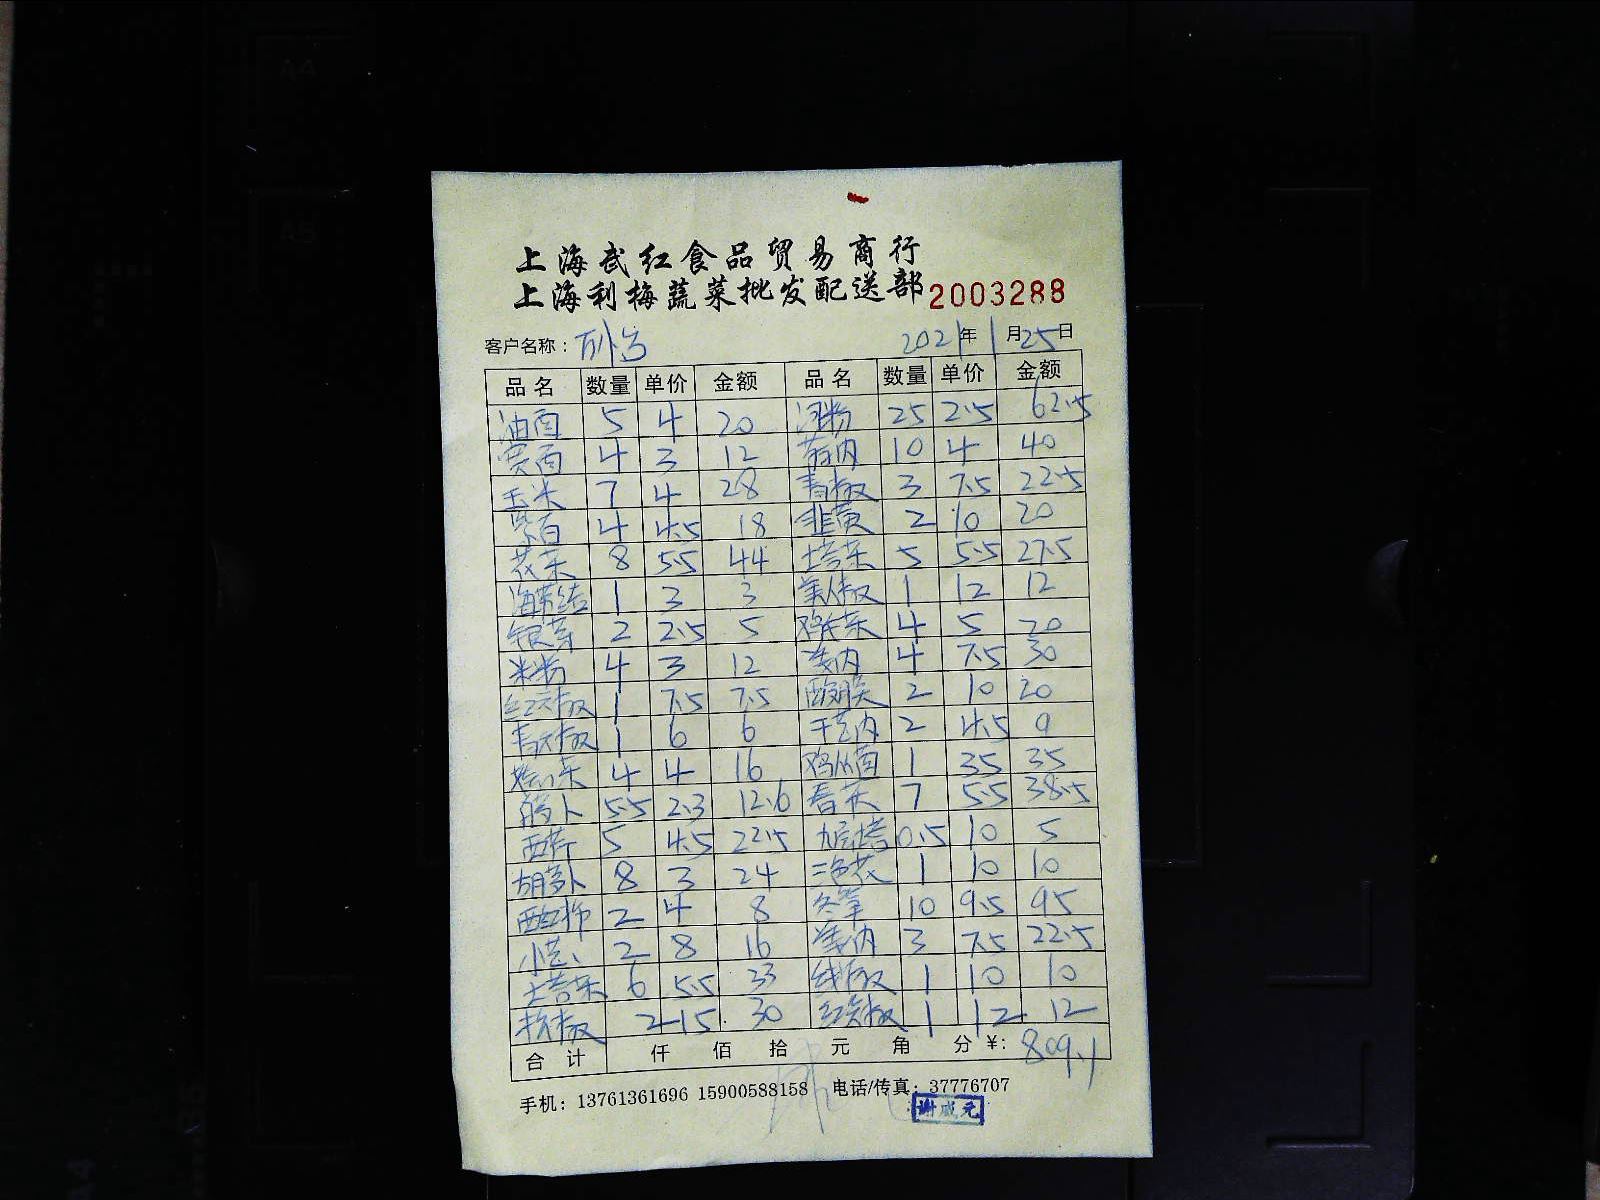 上海武红食品贸易商行
上海利梅蔬菜批发配送部 2003288
客户名称： 2021年1月25日
品名 数量 单价 金额 品名 数量 单价 金额
油面 5 4 20 河粉 25 2.5 62.5
宽面 4 3 12 10 4 40
玉米 7 4 28 青椒 3 7.5 22.5
4 4.5 18 韭黄 2 10 20
花菜 8 5.5 44 土培菜 5 5.5 27.5
海带结 1 3 3 美人椒 1 12 12
银芽 2 2.5 5 鸡毛菜 4 5 20
米粉 4 3 12 4 7.5 30
红尖椒 1 7.5 7.5 2 10 20
青尖椒 1 6 6 2 4.5 9
4 4 16 鸡丛菌 1 35 35
萝卜 5.5 2.3 12.6 7 5.5 38.5
西芹 5 4.5 22.5 九层塔 0.5 10 5
胡萝卜 8 3 24 三色花 1 10 10
西红柿 2 4 8 冬笋 10 9.5 95
2 8 16 3 7.5 22.5
6 5.5 33 线椒 1 10 10
杭椒 2 15 30 红尖椒 1 12 12
合计 仟 佰 拾 元 角 分 ¥: 809.1
手机：13761361696 15900588158 电话/传真：37776707
谢成元